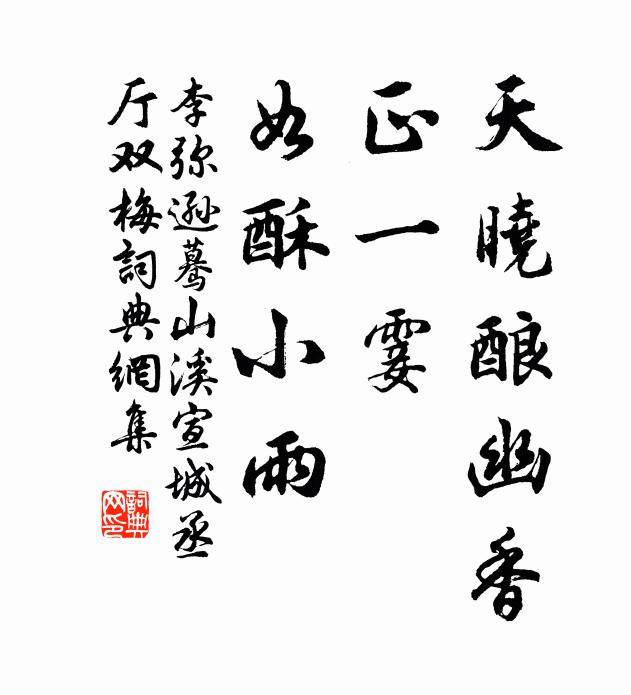 天曉酿幽香
正一霎
如酥小雨
李弥逊蓦山溪宣城丞
厅双梅詞典網集
詞典
网印